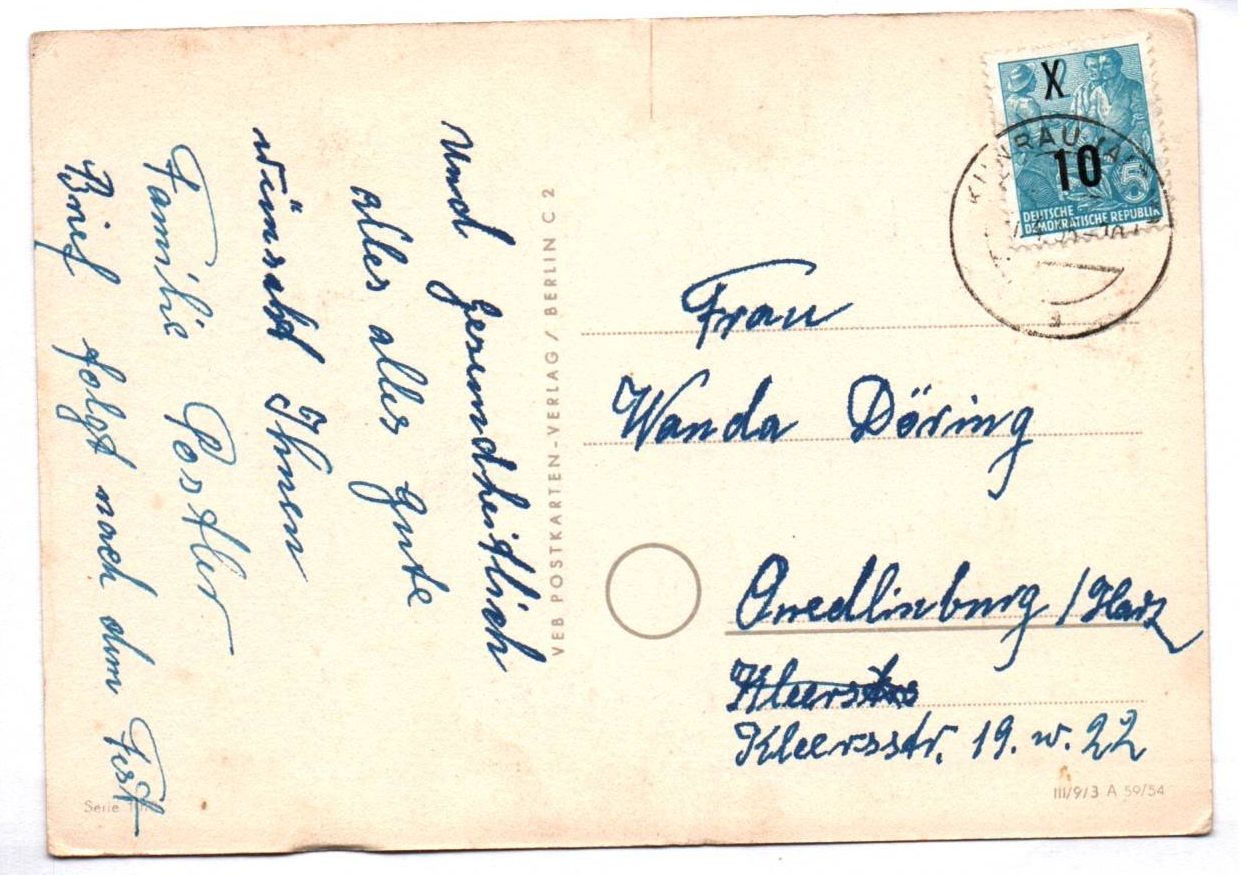 und gesundheitlich
alles alles gute
wünscht Ihnen
Familie Postler
Brief folgt nach dem Fest
VEB POSTKARTEN-VERLAG / BERLIN C 2
X
10
5
DEUTSCHE
DEMOKRATISCHE REPUBLIK
Frau
Wanda Döring
Quedlinburg / Harz
Kleersstr. 19. w. 22
III/9/3 A 59/54
Serie